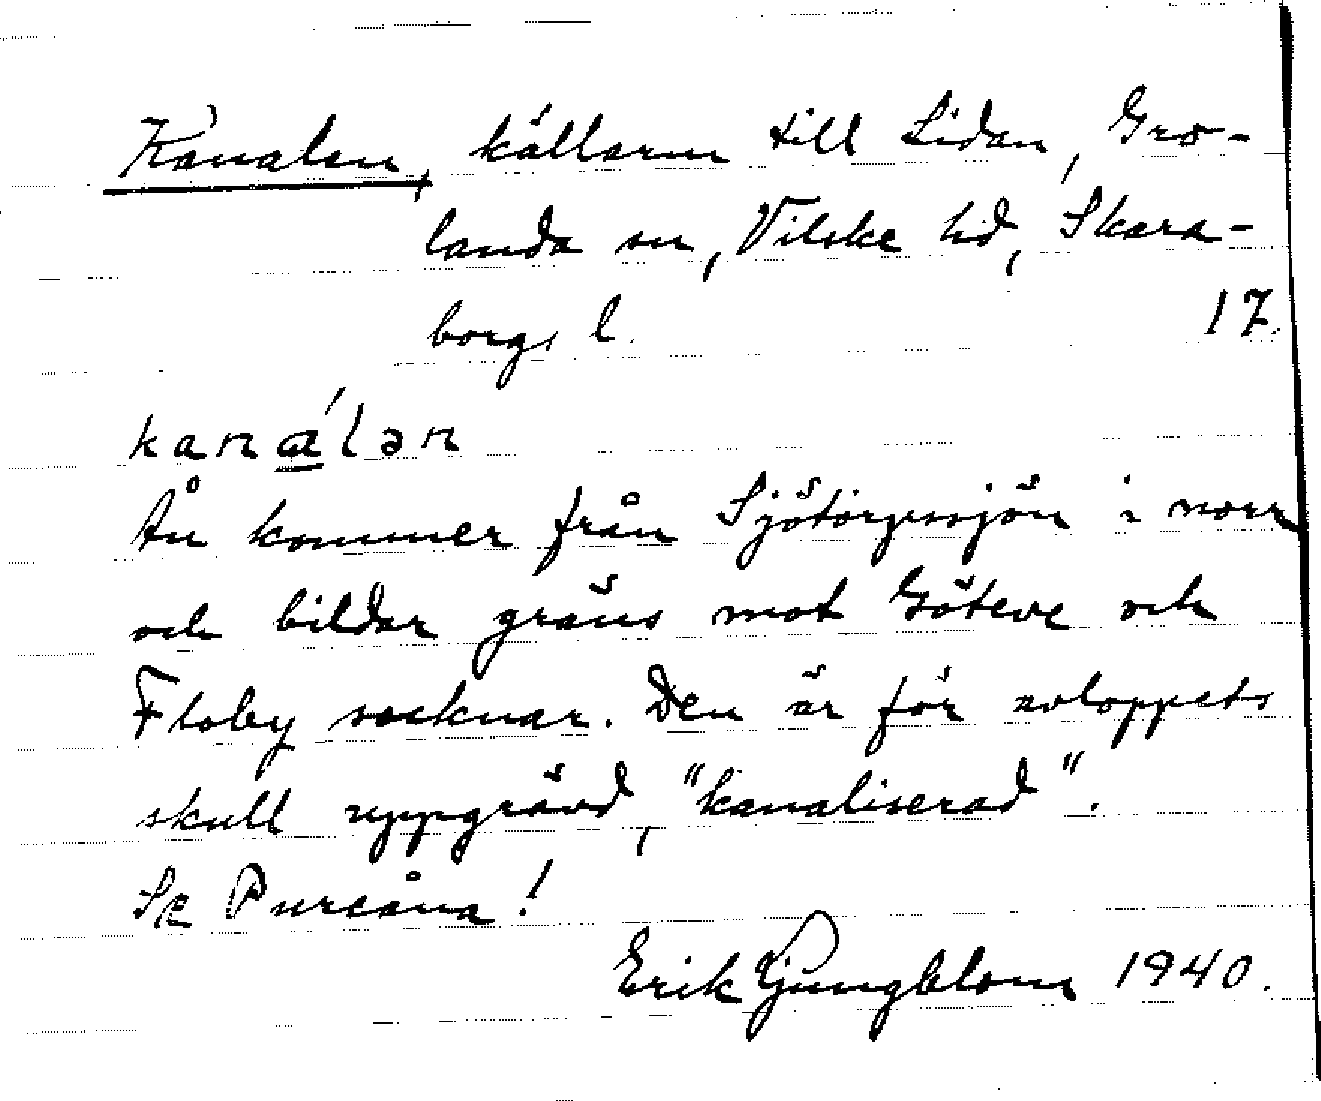 Kanalen, källarm till Lidan, Gro-
landa sn, Vilske hd, Skara-
borgs l. 17.
kanálən
Ån kommer från Sjötorpssjön i norr
och bildar gräns mot Göteve och
Floby socknar. Den är för avloppets
skull uppgrävd, "kanaliserad".
Se Pureåna!
Erik Ljungblom 1940.